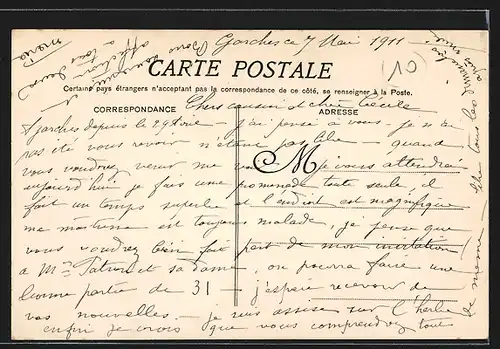 Garches ce 7 Mai 1911
10
CARTE POSTALE
Certains pays étrangers n'acceptant pas la correspondance de ce côté, se renseigner à la Poste.
CORRESPONDANCE
ADRESSE
Chers cousin et chère Cécile
Garches depuis le 29 j'ai pensé à vous je n'ai
pas été vous revoir n'étant pas quand
vous voudrez venir me voir je vous attendrai
M
aujourd'hui je fais une promenade toute seule, il
fait un temps superbe et l'endroit est magnifique
ma est toujours malade, je pense que
vous voudrez bien fait part de mon invitation
à Mr et sa dame, on pourra faire une
bonne partie de 31 — j'espère recevoir de
vos nouvelles — je suis assise sur l'herbe
enfin je crois que vous comprendrez tout
de même
Bons
affection à tous deux
Maria